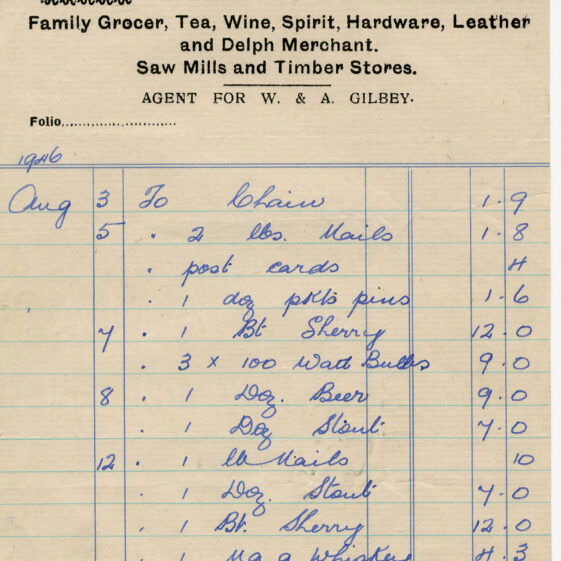 Family Grocer, Tea, Wine, Spirit, Hardware, Leather
and Delph Merchant.
Saw Mills and Timber Stores.
AGENT FOR W. & A. GILBEY.
Folio..............................
1946
Aug 3 To Chain 1.9
5 " 2 lbs. Nails 1.8
" post cards 4
" 1 doz pkts pins 1.6
7 " 1 Bt Sherry 12.0
" 3 x 100 Watt Bulbs 9.0
8 " 1 Doz. Beer 9.0
" 1 Doz Stout 7.0
12 " 1 lb Nails 10
" 1 Doz. Stout 7.0
" 1 Bt. Sherry 12.0
" 1 Whiskey 4.3